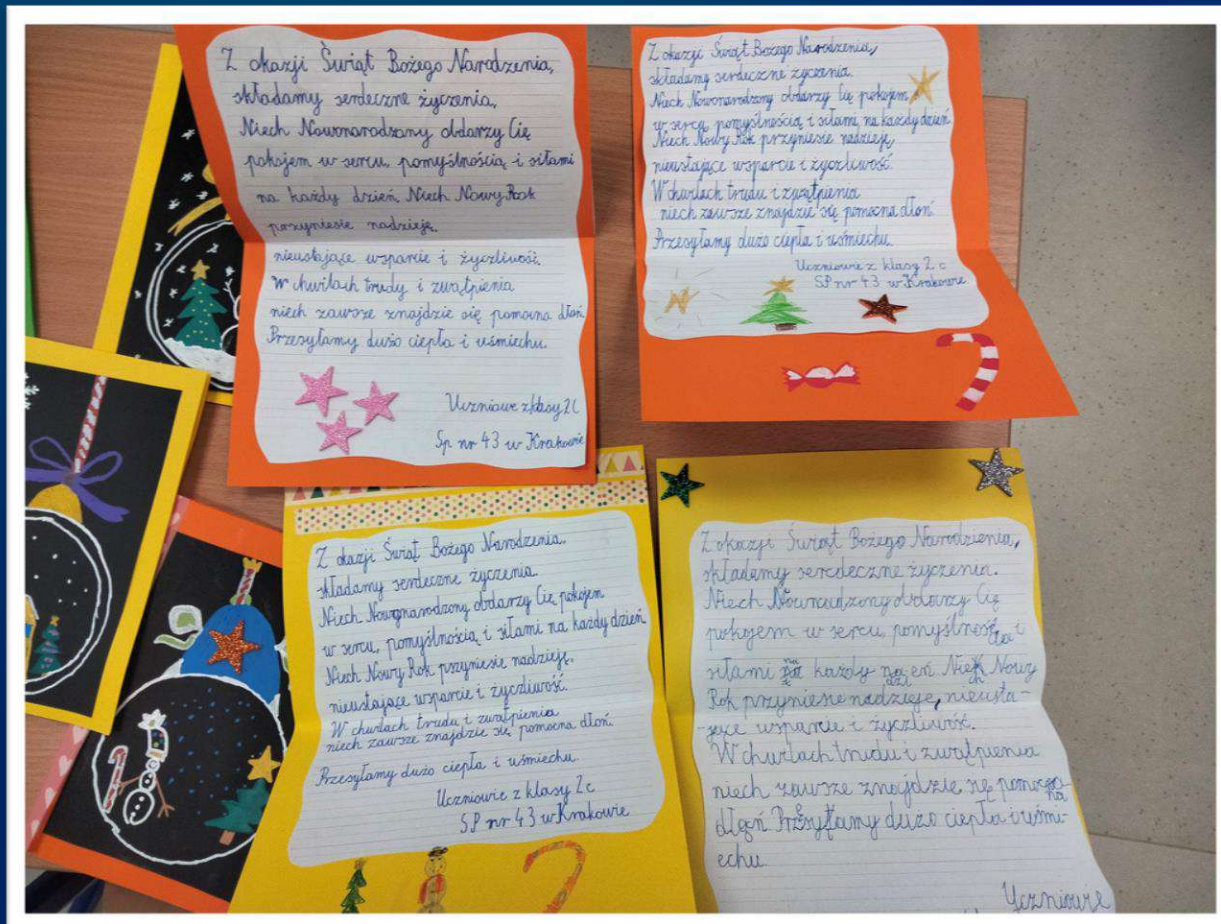 Z okazji Świąt Bożego Narodzenia,
składamy serdeczne życzenia,
Niech Nowonarodzony obdarzy Cię
pokojem w sercu, pomyślnością i siłami
na każdy dzień. Niech Nowy Rok
przyniesie nadzieję,
nieustające wsparcie i życzliwość.
W chwilach trudy i zwątpienia
niech zawsze znajdzie się pomocna dłoń.
Przesyłamy dużo ciepła i uśmiechu.
Uczniowie z klasy 2C
Sp nr 43 w Krakowie
Z okazji Świąt Bożego Narodzenia,
składamy serdeczne życzenia.
Niech Nowonarodzony obdarzy Cię pokojem
w sercu, pomyślnością i siłami na każdy dzień
Niech Nowy Rok przyniesie nadzieję,
nieustające wsparcie i życzliwość.
W chwilach trudu i zwątpienia
niech zawsze znajdzie się pomocna dłoń.
Przesyłamy dużo ciepła i uśmiechu.
Uczniowie z klasy 2 c
SP nr 43 w Krakowie
Z okazji Świąt Bożego Narodzenia.
składamy serdeczne życzenia.
Niech Nowonarodzony obdarzy Cię pokojem
w sercu, pomyślnością i siłami na każdy dzień
Niech Nowy Rok przyniesie nadzieję,
nieustające wsparcie i życzliwość.
W chwilach trudu i zwątpienia
niech zawsze znajdzie się pomocna dłoń.
Przesyłamy dużo ciepła i uśmiechu
Uczniowie z klasy 2c
SP nr 43 w Krakowie
Z okazji Świąt Bożego Narodzenia,
składamy serdeczne życzenia.
Niech obdarzy Cię
pokojem w sercu, pomyślnością i
siłami na każdy Niech Nowy
Rok przyniesie nadzieję, nieusta-
-jące wsparcie i życzliwość.
W chwilach trudu i zwątpienia
niech zawsze znajdzie się pomocna
dłoń. Przesyłamy dużo ciepła i uśmi-
echu.
Uczniowie